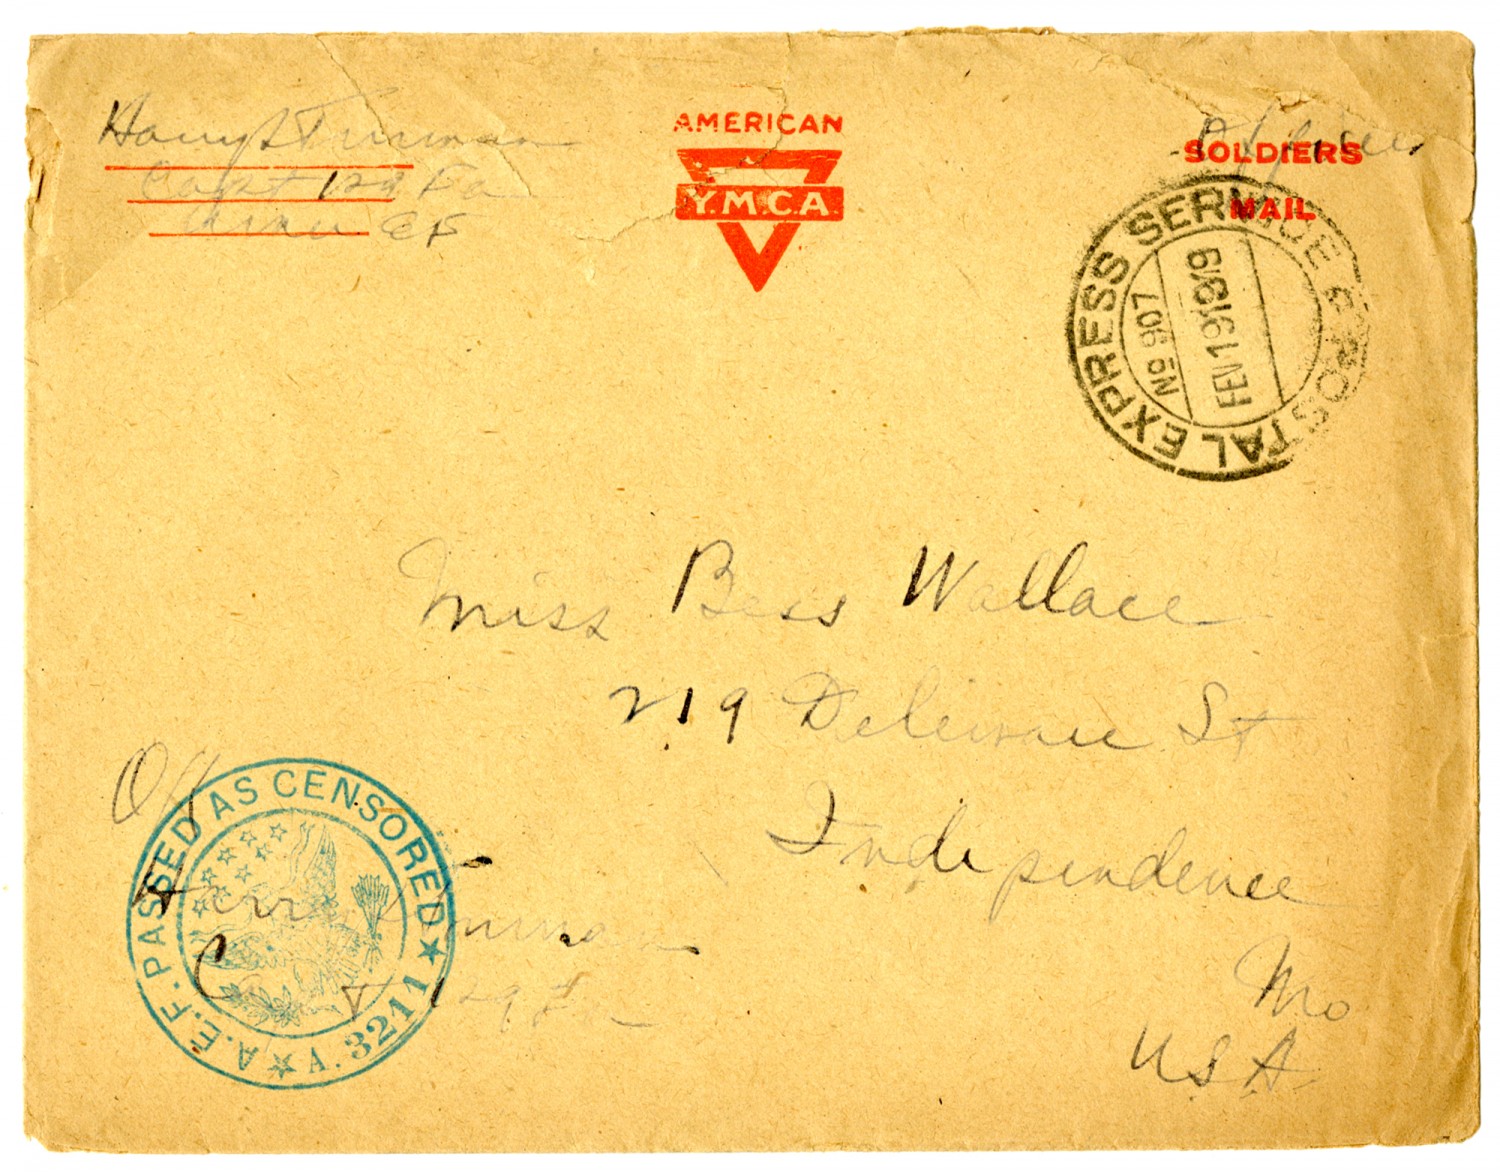 Harry S Truman
Capt 129 Fa
Amer EF
AMERICAN
Y.M.C.A.
Officers
SOLDIERS
MAIL
POSTAL EXPRESS SERVICE
No 907
FEV 19 1919
Miss Bess Wallace
219 Deleware St
Independence
Mo
USA
OK
A.E.F. PASSED AS CENSORED
A. 3211
Harry S Truman
Capt 129 Fa